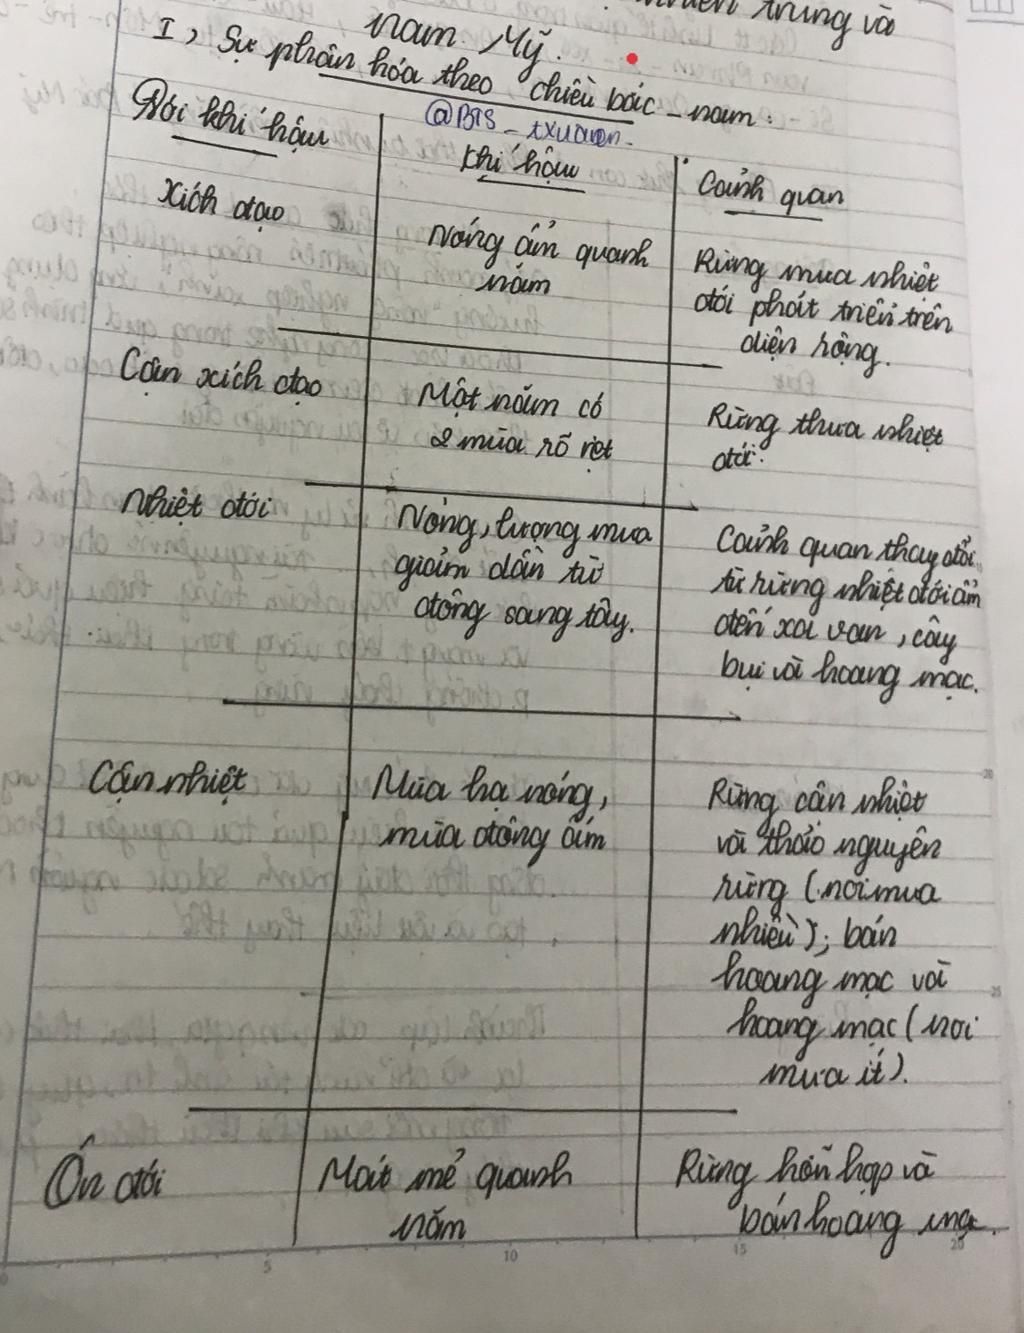 trung và
Nam Mỹ.
I, Sự phân hóa theo chiều bắc - nam:
@BTS_txuaen.
Đới khí hậu
Khí hậu
Cảnh quan
Xích đạo
Nóng ẩm quanh
năm
Rừng mưa nhiệt
đới phát triển trên
diện rộng.
Cận xích đạo
Một năm có
2 mùa rõ rẹt
Rừng thưa nhiệt
đới.
Nhiệt đới
Nóng, lượng mưa
giảm dần từ
đông sang tây.
Cảnh quan thay đổi
từ rừng nhiệt đới ẩm
đến xa van, cây
bụi và hoang mạc.
Cận nhiệt
Mùa hạ nóng,
mùa đông ấm
Rừng cận nhiệt
và thảo nguyên
rừng (nơi mưa
nhiều); bán
hoang mạc và
hoang mạc (nơi
mưa ít).
Ôn đới
Mát mẻ quanh
năm
Rừng hỗn hợp và
bán hoang mạc.
5
10
15
20